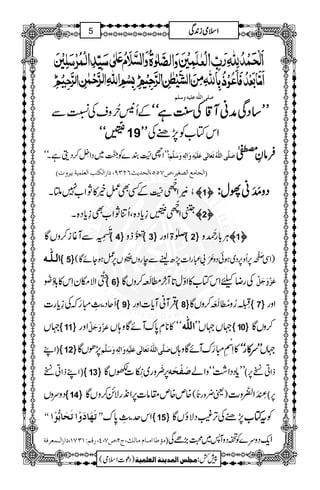 5
اسلامی زندگی
اَلْحَمْدُ لِلّٰهِ رَبِّ الْعٰلَمِیْنَ وَالصَّلٰوةُ وَالسَّلَامُ عَلٰی سَیِّدِ الْمُرْسَلِیْنَ
اَمَّا بَعْدُ فَاَعُوْذُ بِاللّٰهِ مِنَ الشَّیْطٰنِ الرَّجِیْمِ بِسْمِ اللّٰهِ الرَّحْمٰنِ الرَّحِیْمِ
صلی اللہ علیہ وسلم
’’سادگی مدنی آقا کی ہے سنت‘‘ کے اُنیس حُروف کی نسبت سے
اس کتاب کو پڑھنے کی ’’19 نیتیں‘‘
فرمانِ مصطفیٰ صَلَّی اللّٰهُ تَعَالٰی عَلَیْهِ وَاٰلِهٖ وَسَلَّم: ’’اچھی نیّت بندے کو جنّت میں داخل کر دیتی ہے۔‘‘
(الجامع الصغیر، ص۵۵۷، الحدیث۹۳۲۶، دارالکتب العلمیة بیروت)
دو مَدَنی پھول: ﴿1﴾ بِغیر اچّھی نیّت کے کسی بھی عملِ خیر کا ثواب نہیں ملتا۔
﴿2﴾ جتنی اچّھی نیّتیں زِیادہ، اُتنا ثواب بھی زِیادہ۔
﴿1﴾ ہر بار حمد و {2} صلوٰۃ اور {3} تعوُّذ و {4} تَسمِیہ سے آغاز کروں گا
(اسی صفحہ پر اُوپر دی ہوئی دو عَرَبی عبارات پڑھ لینے سے چاروں نیّتوں پر عمل ہوجائے گا)۔ {5} اللّٰه
عَزَّوَجَلَّ کی رضا کیلئے اس کتاب کا اوّل تا آخِر مطالَعہ کروں گا {6} حتَّی الْاِمکان اِس کا باوُضُو
اور {7} قِبلہ رُو مُطالَعَہ کروں گا {8} قرآنی آیات اور {9} احادیثِ مبارکہ کی زیارت
کروں گا {10} جہاں جہاں ’’اللّٰه‘‘ کا نام پاک آئے گا وہاں عَزَّوَجَلَّ اور {11} جہاں
جہاں ’’سرکار‘‘ کا اِسمِ مبارَک آئے گا وہاں صَلَّی اللّٰهُ تَعَالٰی عَلَیْهِ وَاٰلِهٖ وَسَلَّم پڑھوں گا {12} (اپنے
ذاتی نسخے پر) ’’یادداشت‘‘ والے صَفْحَہ پر ضَروری نِکات لکھوں گا {13} (اپنے ذاتی نسخے
پر) عِندَالضَّرورت (یعنی ضرورتاً) خاص خاص مقامات پر انڈر لائن کروں گا {14} دوسروں
کو یہ کتاب پڑھنے کی ترغیب دلاؤں گا {15} اس حدیثِ پاک ’’تَھَادَوْا تَحَابُّوْا‘‘
ایک دوسرے کو تحفہ دو آپس میں محبت بڑھے گی (مؤطا امام مالک، ج۲، ص۴۰۷، رقم: ۱۷۳۱، دارالمعرفة
پیش کش: مجلس المدینة العلمیة (دعوتِ اسلامی)